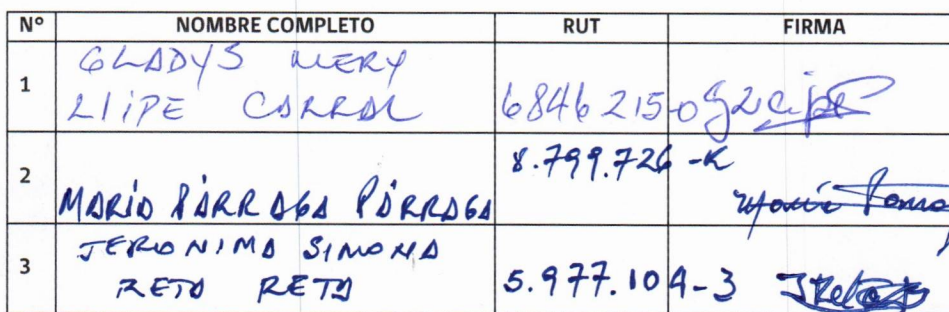 Nº NOMBRE COMPLETO RUT FIRMA
1 GLADYS MERY
LLIPE CARRAL 6846215-0
2 MARIO PÁRRAGA PÁRRAGA 8.799.726-K
3 JERONIMA SIMONA
RETA RETA 5.977.104-3